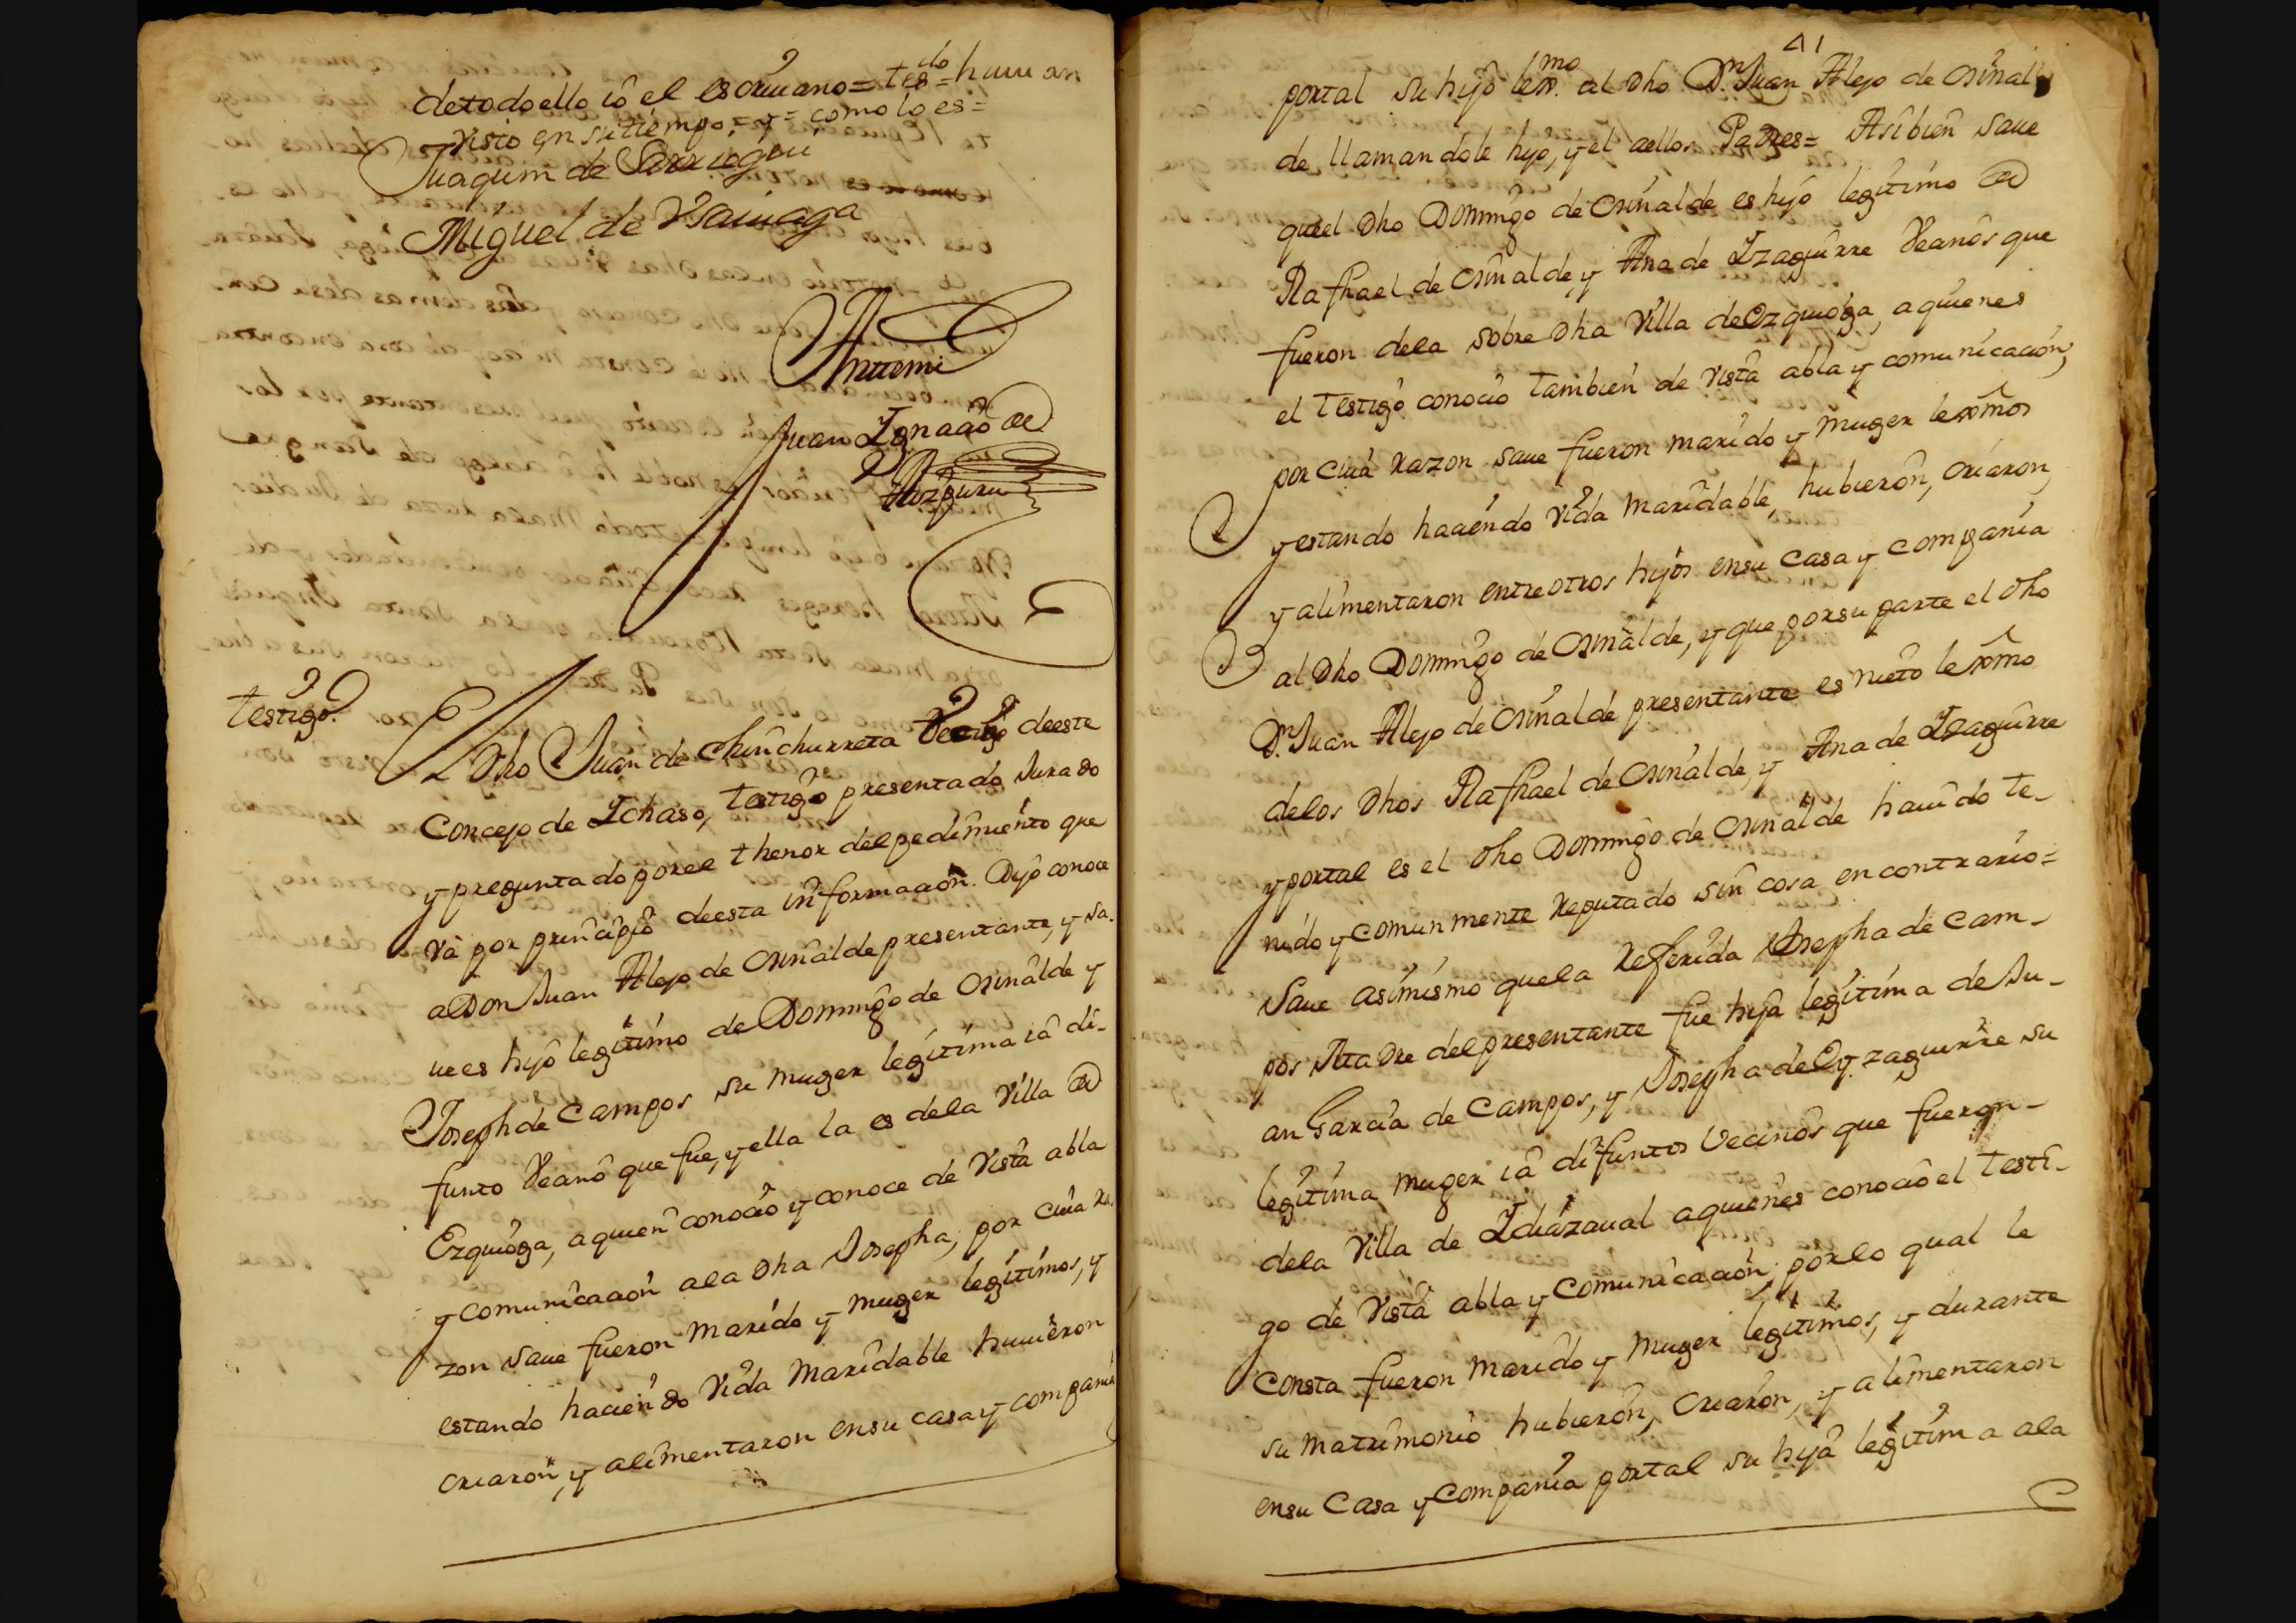 detodoello io el escriuano= tesdo= hauian
visto ensutiempo= y= como lo es=
Juaquim de
Miguel de Vsainaga
Anttemi
Juan Ignacio de
Aozpuru
testigo.
El Dho Juan de Chinchurreta Vecino deeste
Concejo de Ichaso, testigo presentado Jurado
y preguntado porel thenor delpedimiento que
và por principio deesta informacion. Dijo conoce
aDon Juan Alejo de Orinalde presentante, y sa-
ue es hijo legitimo de Domingo de Orinalde y
Joseph de Campos su muger legitima ia di-
funto Vecino que fue, y ella la es dela Villa de
Ezquioga, aquien conocio y conoce de Vista abla
y comunicacion ala Dha Josepha, por cuia Ra-
zon saue fueron Marido y muger legitimos, y
estando haciendo Vida Maridable huuieron
criaron, y alimentaron ensu casa y compania
41
portal su hijo lexmo. al Dho Dn. Juan Alejo de Orinal
de llamandole hijo, y el aellos Padres= Asibien saue
queel Dho Domingo de Orinalde es hijo legitimo de
Raphael de Orinalde, y Ana de Izaguirre Vecinos que
fueron dela sobre Dha Villa deEzquioga, aquienes
el testigo conocio tambien de Vista abla y comunicacion,
por cuia razon saue fueron marido y muger lexmos
y estando haciendo Vida Maridable, hubieron, criaron,
y alimentaron entreotros hijos ensu Casa y compania
al Dho Domingo de Orinalde, y que porsu parte el Dho
Dn. Juan Alejo de Orinalde presentante es nieto lexmo
delos Dhos Raphael de Orinalde, y Ana de Izaguirre
y portal es el Dho Domingo de Orinalde hauido te-
nido y comunmente Reputado sin cosa encontrario=
Saue asimismo quela Referida Josepha de Cam-
pos Madre delpresentante fue hija legitima de Ju-
an Garcia de Campos, y Josepha de Eyzaguirre su
legitima muger ia difuntos Vecinos que fueron-
dela Villa de Idiazaual aquienes conocio el testi-
go de Vista abla y Comunicacion, porlo qual le
Consta fueron Marido y Muger legitimos, y durante
su matrimonio hubieron, Criaron, y alimentaron
ensu Casa y compania portal su hija legitima ala